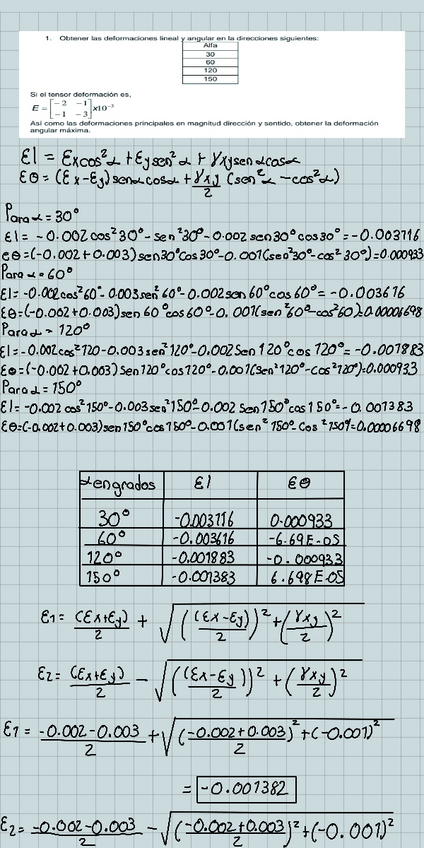 1. Obtener las deformaciones lineal y angular en la direcciones siguientes:
Alfa
30
60
120
150
Si el tensor deformación es,
E = [-2 -1
-1 -3] x10⁻³
Así como las deformaciones principales en magnitud dirección y sentido, obtener la deformación
angular máxima.
εl = εx cos²α + εy sen²α + γxy senα cosα
εθ = (εx - εy) senα cosα + γxy/2 (sen²α - cos²α)
Para α = 30°
εl = -0.002 cos²30° - sen²30° - 0.002 sen30° cos30° = -0.003116
εθ = (-0.002 + 0.003) sen30° cos30° - 0.001(sen²30° - cos²30°) = 0.000933
Para α = 60°
εl = -0.002cos²60° - 0.003sen²60° - 0.002sen60° cos60° = -0.003616
εθ = (-0.002 + 0.003) sen60° cos60° - 0.001(sen²60° - cos²60) = 0.00006698
Para α = 120°
εl = -0.002cos²120 - 0.003sen²120° - 0.002Sen120° cos120° = -0.001883
εθ = (-0.002 + 0.003) Sen120° cos120° - 0.001(Sen²120° - cos²120°) = 0.000933
Para α = 150°
εl = -0.002 cos²150° - 0.003sen²150° - 0.002 Sen150° cos150° = -0.001383
εθ = (-0.002 + 0.003) sen150° cos150° - 0.001(sen²150° - Cos²150° = 0.00006698
α en grados εl εθ
30° -0.003116 0.000933
60° -0.003616 -6.69E-05
120° -0.001883 -0.000933
150° -0.001383 6.698E-05
ε1 = (εx + εy)/2 + √(((εx - εy)/2)² + (γxy/2)²)
ε2 = (εx + εy)/2 - √(((εx - εy)/2)² + (γxy/2)²)
ε1 = (-0.002 - 0.003)/2 + √((-0.002 + 0.003)/2)² + (-0.001)²
= -0.001382
ε2 = (-0.002 - 0.003)/2 - √((-0.002 + 0.003)/2)² + (-0.001)²